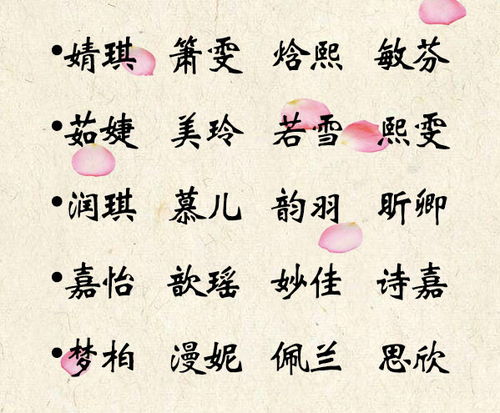 •婧琪 箫雯 焓熙 敏芬
•茹婕 美玲 若雪 熙雯
•润琪 慕儿 韵羽 昕卿
•嘉怡 歆瑶 妙佳 诗嘉
•梦柏 漫妮 佩兰 思欣